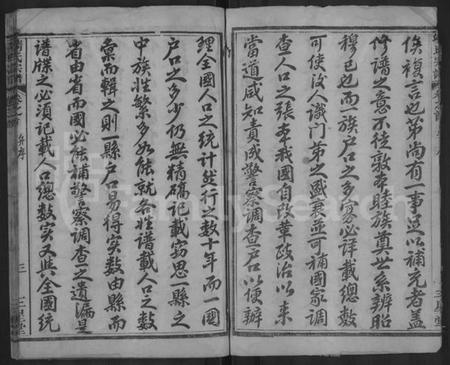 俟複言也第尚有一事足以補充者蓋
修譜之意不徒敦本睦族奠世系辨昭
穆已也而族戶口之多寡必詳載總數
可使後人識門第之盛衰並可補國家調
查人口之張本我國自改革政治以來
當道咸知責成警察調查戶口以便辦
經全國人口之统计然行之數十年而一國
戶口之多少仍無精確記載竊思一縣之
中族姓繁多如能就各姓譜載人口之數
彙而輯之則一縣戶口易得實數由縣而
省由省而國必能補警察調查之遺漏是
譜牒之必須記載人口總數實又與全國統
氏宗譜 卷之首 弁序 三 三
FamilySearch